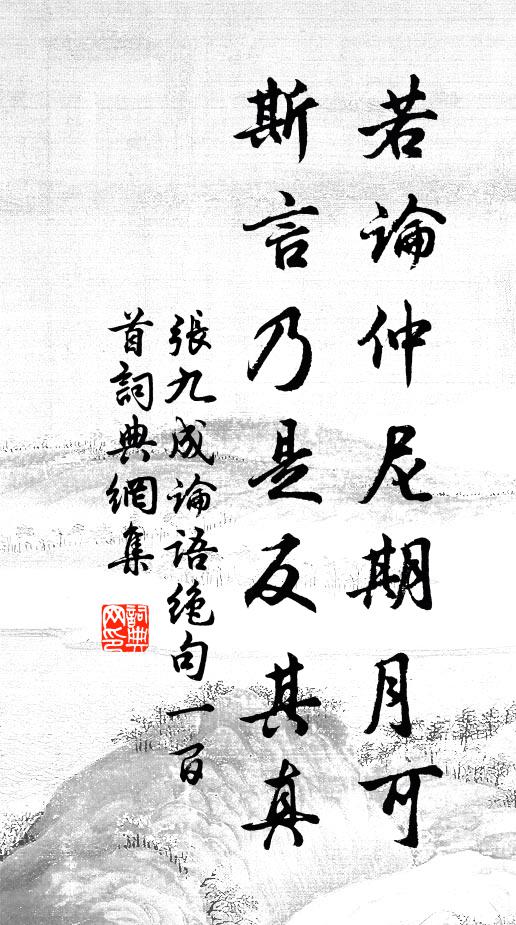 若論仲尼期月可
斯言乃是反其真
張九成論語绝句一百
首詞典網集
詞典
网印